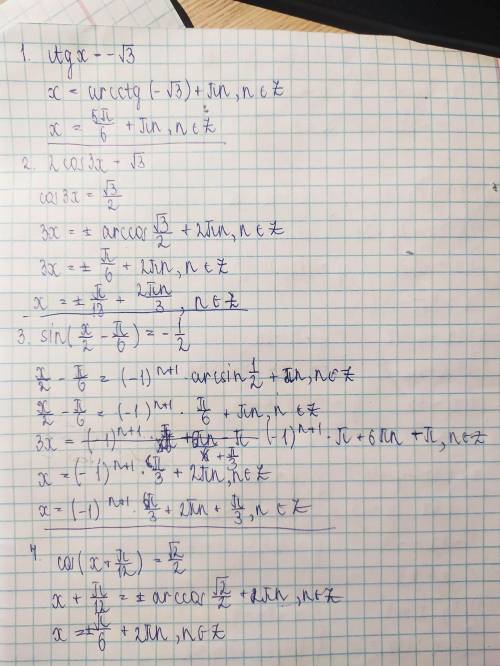 1. ctg x = -√3
x = arcctg (-√3) + πn, n ∈ Z
x = 5π/6 + πn, n ∈ Z
2. 2cos3x = √3
cos3x = √3/2
3x = ± arccos √3/2 + 2πn, n ∈ Z
3x = ± π/6 + 2πn, n ∈ Z
x = ± π/18 + 2πn/3, n ∈ Z
3. sin(x/2 - π/6) = -1/2
x/2 - π/6 = (-1)^n+1 · arcsin 1/2 + πn, n ∈ Z
x/2 - π/6 = (-1)^n+1 · π/6 + πn, n ∈ Z
3x = (-1)^n+1 · π + 6πn + π, n ∈ Z
x = (-1)^n+1 · π/3 + 2πn + π/3, n ∈ Z
x = (-1)^n+1 · π/3 + 2πn + π/3, n ∈ Z
4. cos(x + π/12) = √2/2
x + π/12 = ± arccos √2/2 + 2πn, n ∈ Z
x = ± π/6 + 2πn, n ∈ Z